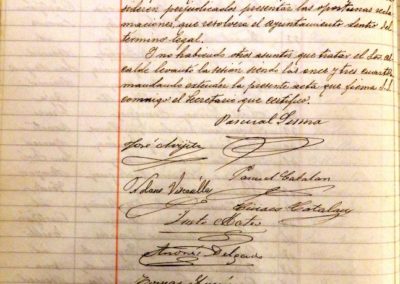 perjudicados presentar las oportunas recla
maciones, que resolverá el ayuntamiento dentro del
termino legal.
Y no habiendo otros asuntos que tratar el Sr. al
calde levantó la sesión siendo las once y tres cuartos
mandando extender la presente acta que firma S.S.
conmigo el Secretario que certifico.
Pascual Lesma
José
Manuel Catalan
Catalan
Justo Mateo
Andrés Delgado